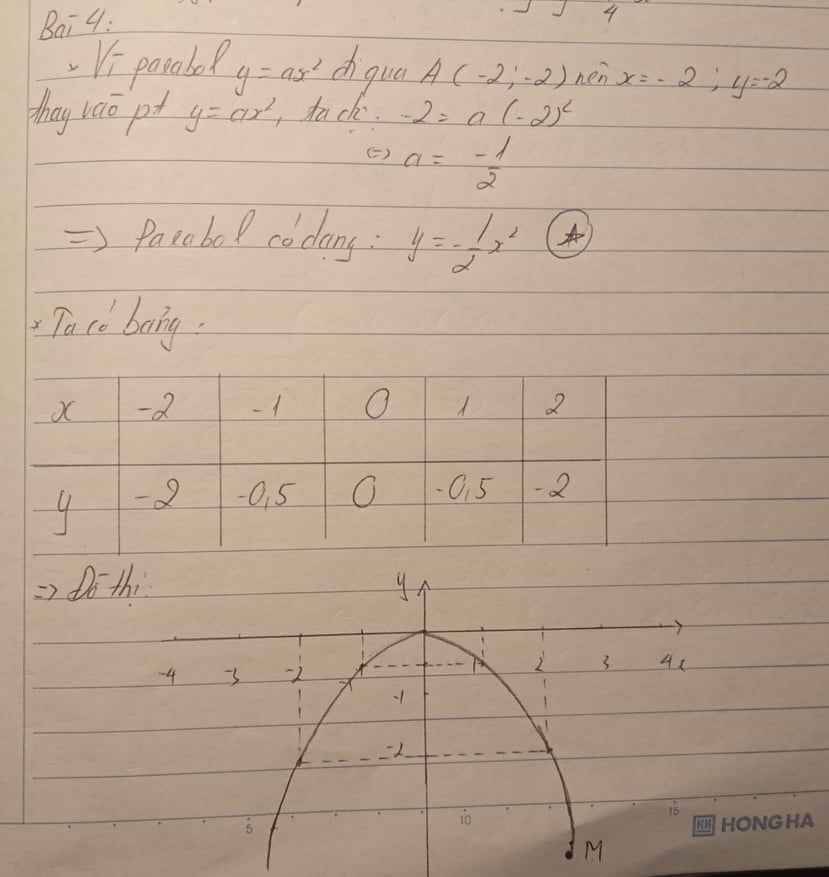 4
Bài 4:
× Vì parabol y = ax² đi qua A (-2; -2) nên x = - 2 ; y = -2
thay vào pt y = ax², ta đc: -2 = a (-2)²
<=> a = -1/2
=> Parabol có dạng: y = -1/2 x² ☆
× Ta có bảng:
x -2 -1 0 1 2
y -2 -0,5 0 -0,5 -2
=> Đồ thị:
y
-4 -3 -2 -1 1 2 3 4 x
-1
-2
5 10 15
HH HONG HA
M